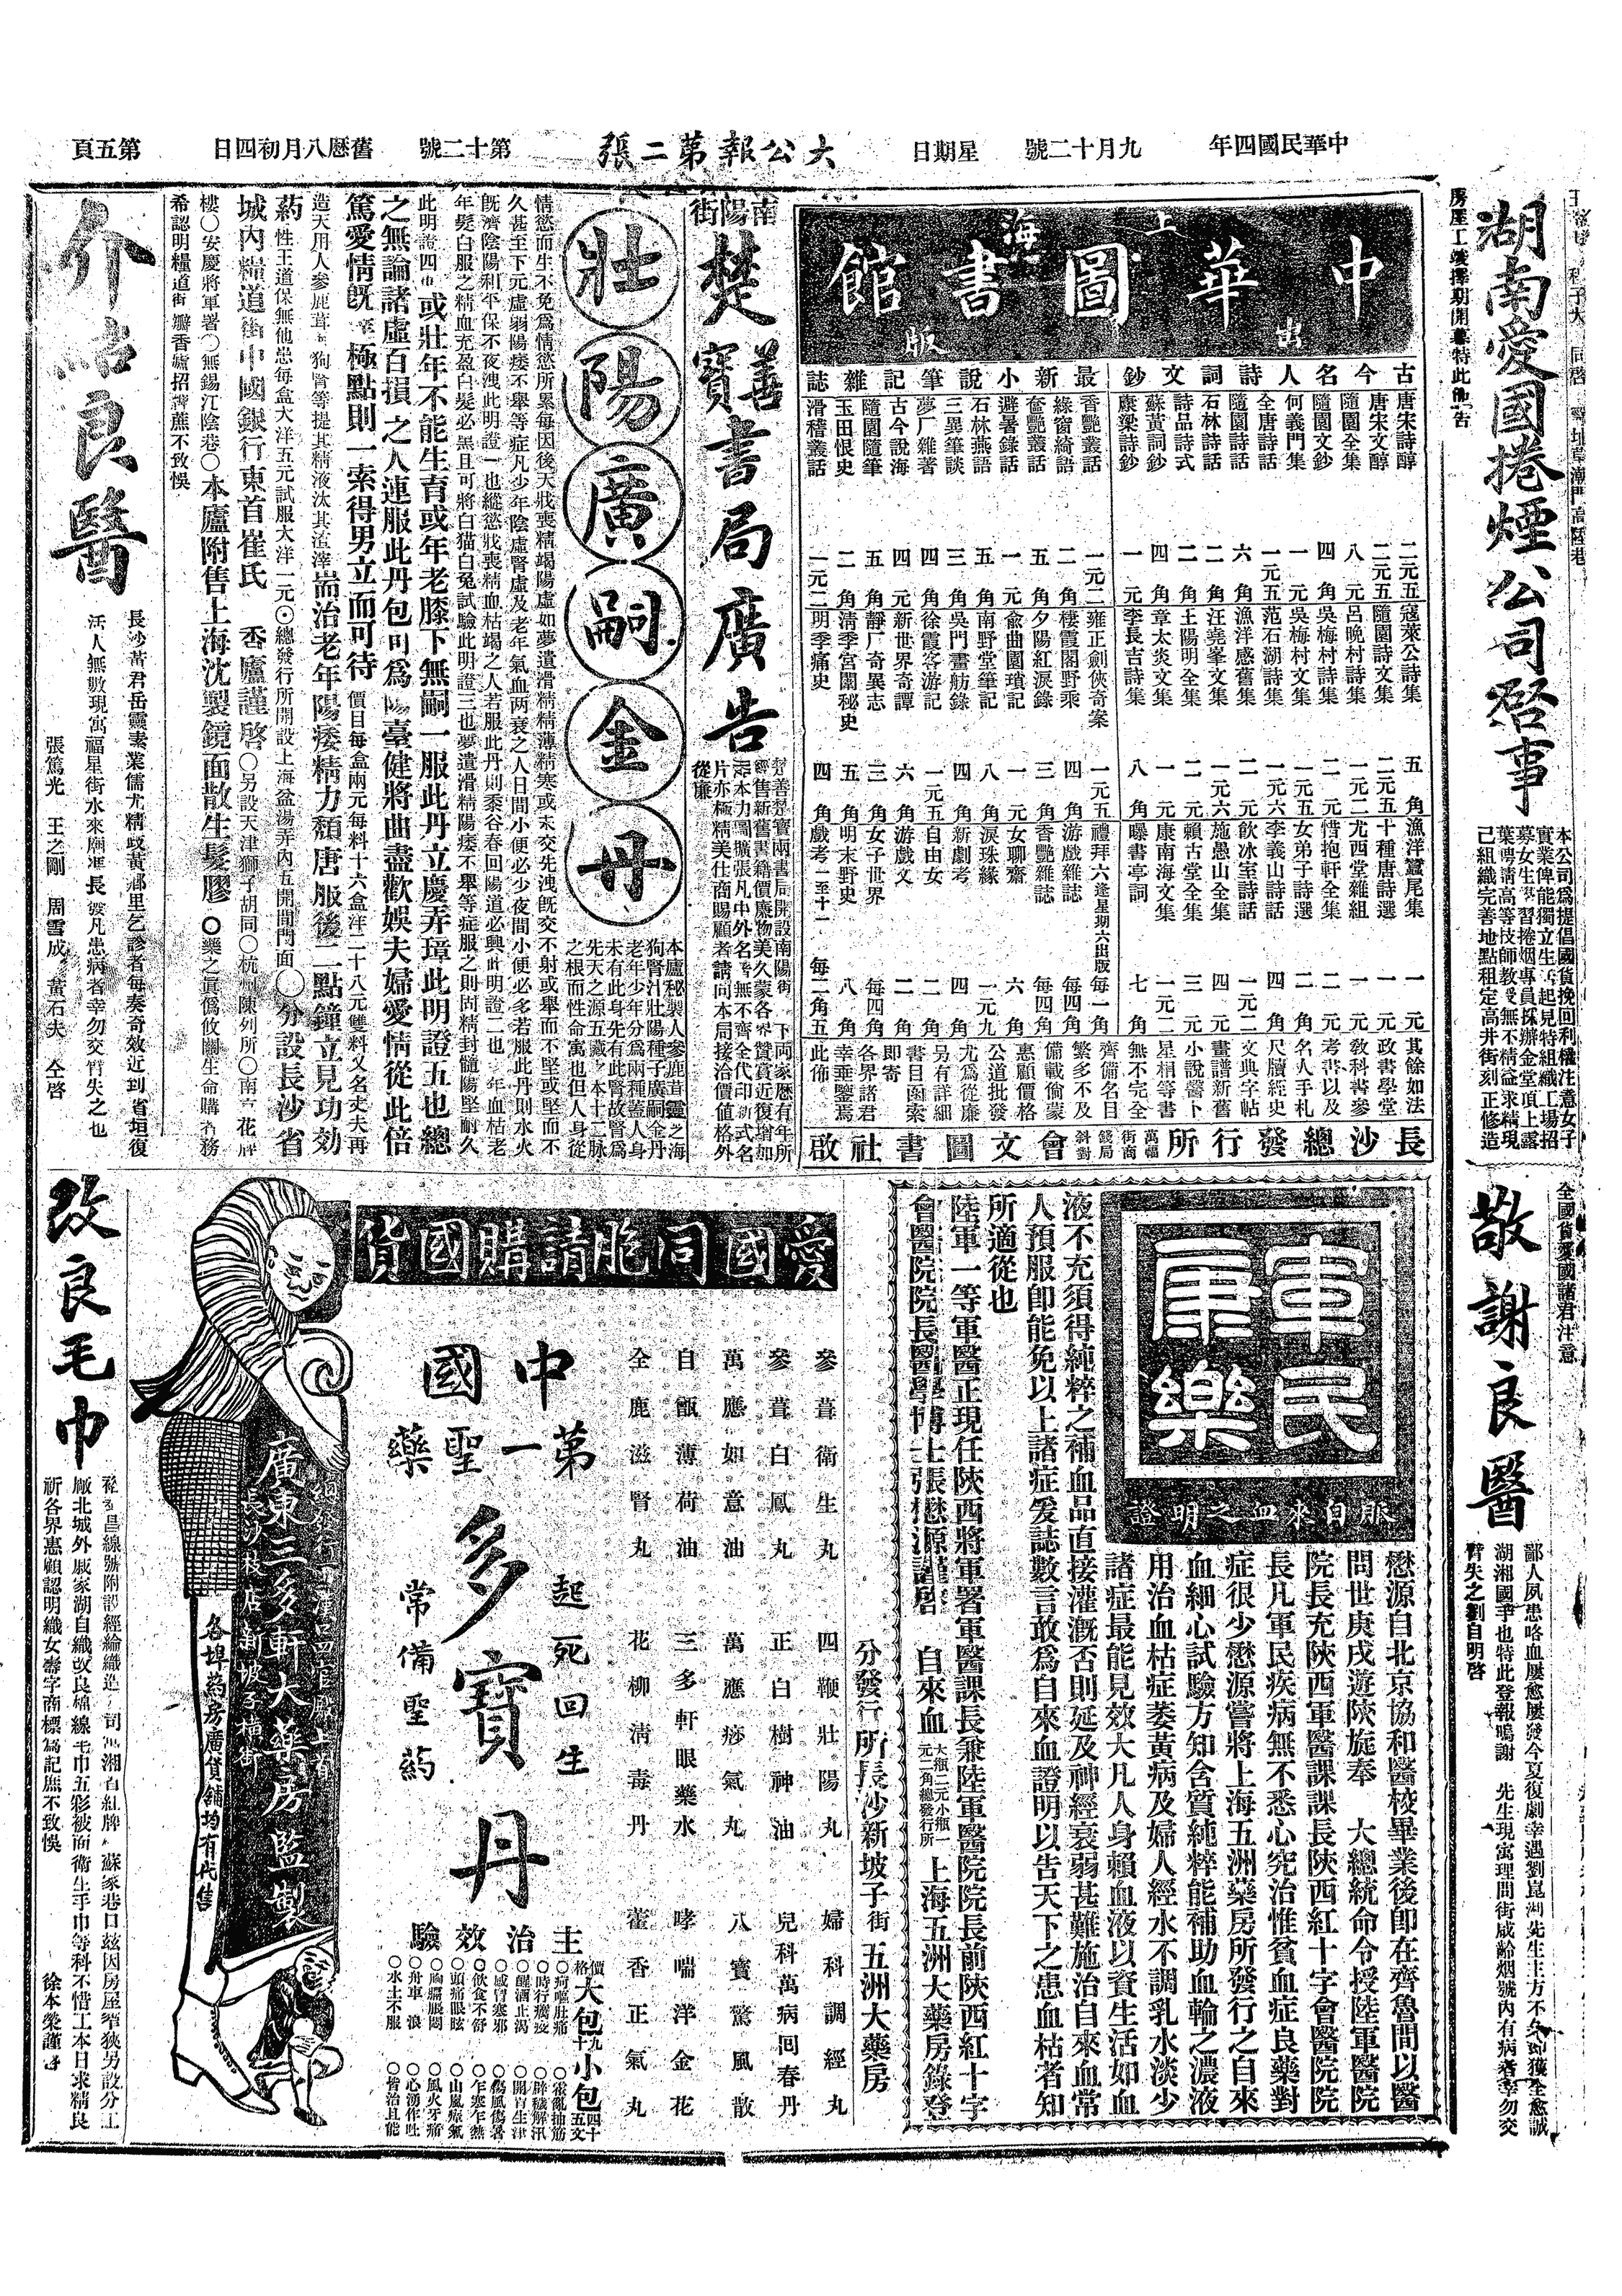 中華民國四年
九月十二號
星期日
大公報第二張
第十二號
舊曆八月初四日
第五頁
湖南愛國捲煙公司啓事
本公司爲提倡國貨挽回利權注意女子
實業俾能獨立生活起見特組織工場招
募女生學習捲烟專員採辦金堂頂上露
葉聘請高等技師教授無不精益求精現
已組織完善地點租定高井街刻正修造
房屋工竣擇期開幕特此佈告
全國貨愛國諸君注意
敬謝良醫
鄙人夙患咯血屢愈屢發今夏復劇幸遇劉崑湖先生主方不久卽獲全愈誠
湖湘國手也特此登報鳴謝 先生現寓理問街咸齡烟號內有病者幸勿交
臂失之劉自明啓
上海
中華圖書館
出版
古今名人詩詞文鈔
唐宋詩醇 二元五
唐宋文醇 二元五
隨園全集 八元
隨園文鈔 四角
何義門集 一元
全唐詩話 一元五
隨園詩話 六角
石林詩話 二角
詩品詩式 二角
蘇黃詞鈔 四角
康梁詩鈔 一元
最新小說筆記雜誌
香艷叢話 一元二
綠窗綺語 二角
奩艷叢話 五角
避暑錄話 一元
石林燕語 五角
三異筆談 三角
夢厂雜著 四角
古今說海 四元
隨園隨筆 五角
玉田恨史 二角
滑稽叢話 一元二
寇萊公詩集 五角
隨園詩文集 二元五
呂晚村詩集 一元二
吳梅村詩集 二元
吳梅村文集 一元五
范石湖詩集 一元六
漁洋感舊集 二元
汪堯峯文集 一元六
王陽明全集 二元
章太炎文集 一元
李長吉詩集 八角
雍正劍俠奇案 一元五
棲霞閣野乘 四角
夕陽紅淚錄 三角
兪曲園瑣記 一元
南野堂筆記 八角
吳門畫舫錄 四角
徐霞客游記 一元五
新世界奇譚 六角
靜厂奇異志 三角
清季宮闈秘史 五角
明季痛史 四角
漁洋蠶尾集 一元
十種唐詩選 一元
尤西堂雜組 二元
惜抱軒全集 二元
女弟子詩選 二角
李義山詩話 四角
飲冰室詩話 一元二
施愚山全集 四元
賴古堂全集 三元
康南海文集 一元二
曝書亭詞 七角
禮拜六逢星期六出版 每一角
游戲雜誌 每四角
香艷雜誌 每四角
女聊齋 六角
淚珠緣 一元九
新劇考 四角
自由女 二角
游戲文 二角
女子世界 每四角
明末野史 八角
戲考一至十一 每二角五
其餘如法
政書學堂
敎科書參
考書以及
名人手札
尺牘經史
文典字帖
畫譜新舊
小說醫卜
星相等書
無不完全
齊備名目
繁多不及
備載倘蒙
惠顧價格
公道批發
尤爲從廉
另有詳細
書目函索
即寄
各界諸君
幸垂鑒焉
此佈
長沙總發行所
會文圖書社啟
南陽街
楚善寶書局廣告
壯陽廣嗣金丹
本廬秘製人參鹿茸靈之海
狗腎汁壯陽種子廣嗣金丹
老年少年分爲兩種蓋人身
未有此身先有此腎故腎爲
先天之源五臟之本十二脉
之根而性命寓也但人身從
情慾而生不免爲情慾所累每因後天戕喪精竭陽虛如夢遺滑精精薄精寒或未交先洩旣交不射或舉而不堅或堅而不
久甚至下元虛弱陽痿不舉等症凡少年陰虛腎虛及老年氣血兩衰之人日間小便必少夜間小便必多若服此丹則水火
旣濟陰陽和平保不夜洩此明證一也縱慾戕喪精血枯竭之人若服此丹則黍谷春回陽道必興此明證二也
年髮白服之精血充盈白髮必黑且可將白猫白兔試驗此明證三也夢遺滑精陽痿不舉等症服之則固精封髓陽堅耐久
此明證四也或壯年不能生育或年老膝下無嗣一服此丹立慶弄璋此明證五也總
之無論諸虛百損之人連服此丹包可爲陽臺健將曲盡歡娛夫婦愛情從此倍
篤愛情旣達極點則一索得男立而可待
價目每盒兩元每料十六盒洋二十八元雙料又名丈夫再
造大用人參鹿茸狗腎等提其精液汰其渣滓耑治老年陽痿精力頹唐服後二點鐘立見功効
葯性王道保無他患每盒大洋五元試服大洋一元⊙總發行所開設上海盆湯弄內五開間門面○分設長沙省
城內糧道街中國銀行東首崔氏 香廬謹啓○另設天津獅子胡同○杭州陳列所○南京花牌
樓○安慶將軍署○無錫江陰巷○本廬附售上海沈製鏡面散生髮膠
希認明糧道街瓣香廬招牌庶不致悞
介紹良醫
長沙黃君岳靈素業儒尤精岐黃鄉里乞診者每奏奇效近到省垣復
活人無數現寓福星街水來廟凡患病者幸勿交臂失之也
張篤光 王之剛 周雪成 黃石夫 仝啓
軍民康樂
服自來血之明證
懋源自北京協和醫校畢業後卽在齊魯間以醫
問世庚戌遊陝旋奉 大總統命令授陸軍醫院
院長充陝西軍醫課課長陝西紅十字會醫院院
長凡軍民疾病無不悉心究治惟貧血症良藥對
症很少懋源嘗將上海五洲藥房所發行之自來
血細心試驗方知含質純粹能補助血輪之濃液
用治血枯症委黃病及婦人經水不調乳水淡少
諸症最能見效大凡人身賴血液以資生活如血
液不充須得純粹之補血品直接灌漑否則延及神經衰弱甚難施治自來血常
人預服卽能免以上諸症爰誌數言敢爲自來血證明以告天下之患血枯者知
所適從也
陸軍一等軍醫正現任陝西將軍署軍醫課長兼陸軍醫院院長前陝西紅十字
會醫院院長醫學博士張懋源謹啓
自來血
大瓶二元小瓶一
元二角總發行所
上海五洲大藥房錄登
分發行所長沙新坡子街五洲大藥房
愛國同胞請購國貨
參茸衛生丸 四鞭壯陽丸 婦科調經丸
參茸白鳳丸 正白樹神油 兒科萬病囘春丹
萬應如意油 萬應痧氣丸 八寶驚風散
自甑薄荷油 三多軒眼藥水 哮喘洋金花
全鹿滋腎丸 花柳清毒丹 藿香正氣丸
中國
第一聖藥
起死回生
多寶丹
常備聖葯
主治效驗
價格 大包九十 小包四十五文
○時行瘟疫
○醒酒止渴
○感冒寒邪
○飲食不舒
○頭痛眼眩
○胸膈脹悶
○舟車 浪
○水土不服
○霍亂抽筋
○辟穢解汛
○開胃生津
○傷風傷暑
○乍寒乍熱
○山嵐瘴氣
○風火牙痛
○心湧作吐
○皆治且能
廣東三多軒大藥房監製
各埠葯房廣貨鋪均有代售
改良毛巾
廠北城外戚家湖自織改良綿線毛巾五彩被面衛生手巾等科不惜工本日求精良
祈各界惠顧認明織女壽字商標爲記庶不致悞
徐本榮謹啓